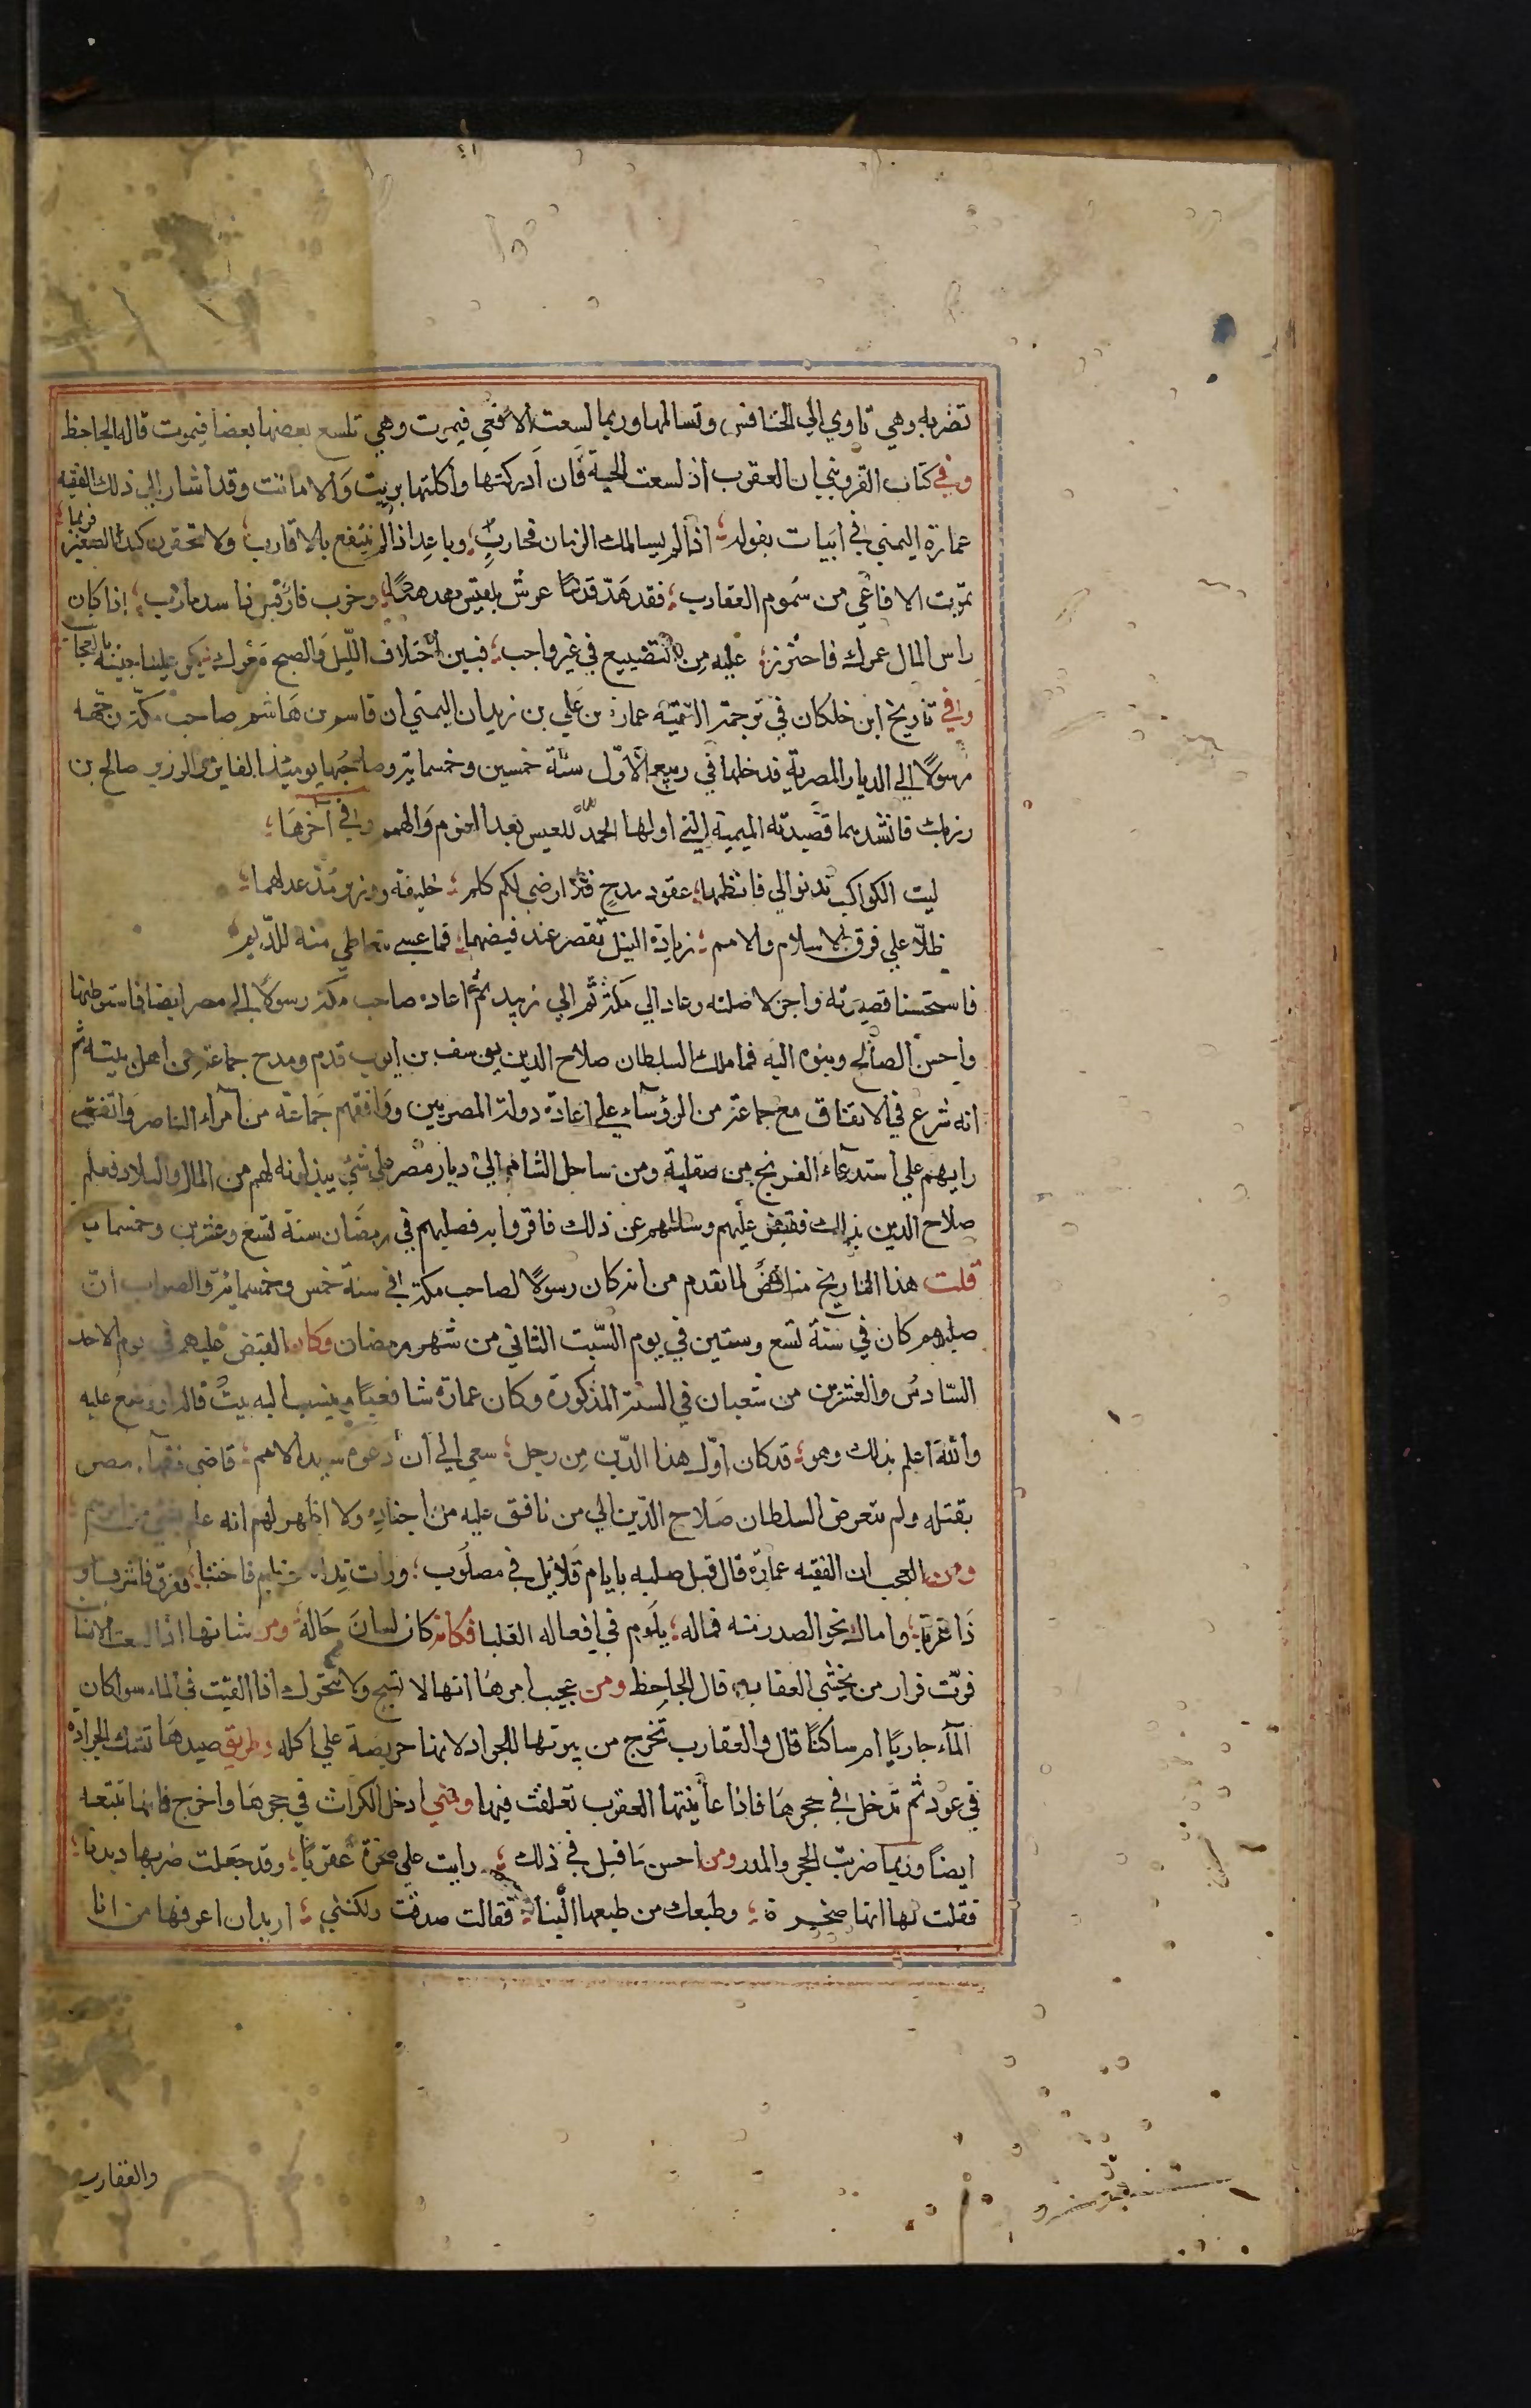 تضربه وهي تاوي الي الخنافس وتسالمها وربما لسعت الافعي فيموت وهي تلسع بعضها بعضا فيموت قاله الجاحظ
وفي كتاب القزويني ان العقرب اذ لسعت الحية فان ادركتها واكلتها بريت والا ماتت وقد اشار الي ذلك الفقيه
عمارة اليمني في ابيات بقوله اذا لم يسالمك الزمان فحارب وباعد اذا لم تنتفع بالاقارب ولا تحقرن كيد الصغير فربما
تموت الافاعي من سموم العقارب فقد هد قدما عرش بلقيس هدهد وخرب فار قبل ذا سد مارب اذا كان
راس المال عمرك فاحترز عليه من التضييع في غير واجب فبين اختلاف الليل والصبح يكر علينا جيشه بالعجا
وفي تاريخ ابن خلكان في ترجمة عمارة بن علي بن زيدان اليمني ان قاسم بن هاشم صاحب مكة وجهه
رسولا الي الديار المصرية فدخلها في ربيع الاول سنة خمسين وخمسماية وصاحبها يومئذ الفايز والوزير صالح بن
رزيك فانشدهما قصيدته الميمية التي اولها الحمد للعيس بعد العزم والهمم وفي اخرها
ليت الكواكب تدنو الي فانظمها عقود مدح فلا ارضي لكم كلم خليفة ووزير مد عدلهما
ظلا علي فرق الاسلام والامم زيادة النيل تقصر عند فيضهما فما عسي تعاطي منه للديم
فاستحسنا قصيدته واجزلا صلته وعاد الي مكة ثم الي زبيد ثم اعاده صاحب مكة رسولا الي مصر ايضا فاستوطنها
واحسن الصالح وبنوه اليه فما ملك السلطان صلاح الدين يوسف بن ايوب قدم ومدح جماعة من اهل بيته ثم
انه شرع في الاتفاق مع جماعة من الرؤسآء علي اعادة دولة المصريين ووافقهم جماعة من امراء الناصر واتفق
رايهم علي استدعاء الفرنج من صقلية ومن ساحل الشام الي ديار مصر علي شئ يبذلونه لهم من المال والبلاد فعلم
صلاح الدين بذلك فقبض عليهم وسالهم عن ذلك فاقروا به فصلبهم في رمضان سنة تسع وعشرين وخمسماية
قلت هذا التاريخ مناقض لما تقدم من انه كان رسولا لصاحب مكة في سنة خمس وخمسمائة والصواب ان
صلبهم كان في سنة تسع وستين في يوم السبت الثاني من شهر رمضان وكان القبض عليهم في يوم الاحد
السادس والعشرين من شعبان في السنة المذكورة وكان عمارة شافعيا وينسب اليه بيت قاله او وضع عليه
والله اعلم بذلك وهو قد كان اول هذا الدين من رجل سعي الي ان دعوه سيد الامم قاضي فقهآء مصر
بقتله ولم يتعرض السلطان صلاح الدين الي من نافق عليه من اجناده ولا اظهر لهم انه علم بشي من امرهم
ومن العجب ان الفقيه عمارة قال قبل صلبه بايام قلائل في مصلوب ورات يداه فاختبا
وامال نحو الصدر منه فما له يلوم في افعاله القلبا فكانه كان لسان حاله ومن شانها اذا لسعت الانسان
فرت فرار من يخشي العقاب قال الجاحظ ومن عجيب امرها انها لا تسبح ولا تتحرك اذا القيت في الماء سوا كان
المآء جاريا ام ساكنا قال والعقارب تخرج من بيوتها للجراد لانها حريصة علي اكله وطريق صيدها تشك الجرادة
في عود ثم تدخل في جحرها فاذا عاينتها العقرب تعلقت فيها ومتي ادخل الكراث في جحرها واخرج فانها تتبعه
ايضا وربما ضربت الحجر والمدر ومن احسن ما قيل في ذلك رايت علي صخرة عقربا وقد جعلت ضربها ديدنا
فقلت لها انها صخيرة وطبعك من طبعها الينا فقالت صدقت ولكنني اريد ان اعرفها من انا
والعقارب